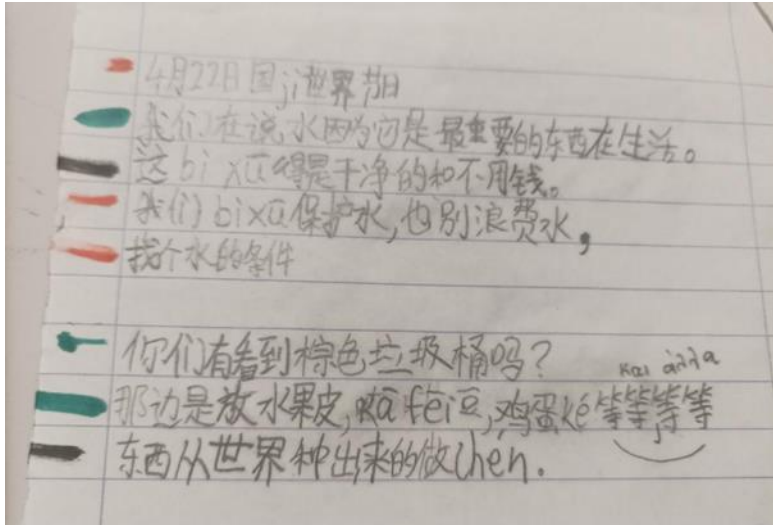 4月22日国ji世界节日
我们在说水因为它是最重要的东西在生活。
这bi xū得是干净的和不用钱。
我们bixū保护水,也别浪费水,
找个水的条件
你们有看到棕色垃圾桶吗?
και άλλα
那边是放水果皮,kā fēi豆,鸡蛋ké等等,等等
东西从世界种出来的做chen.